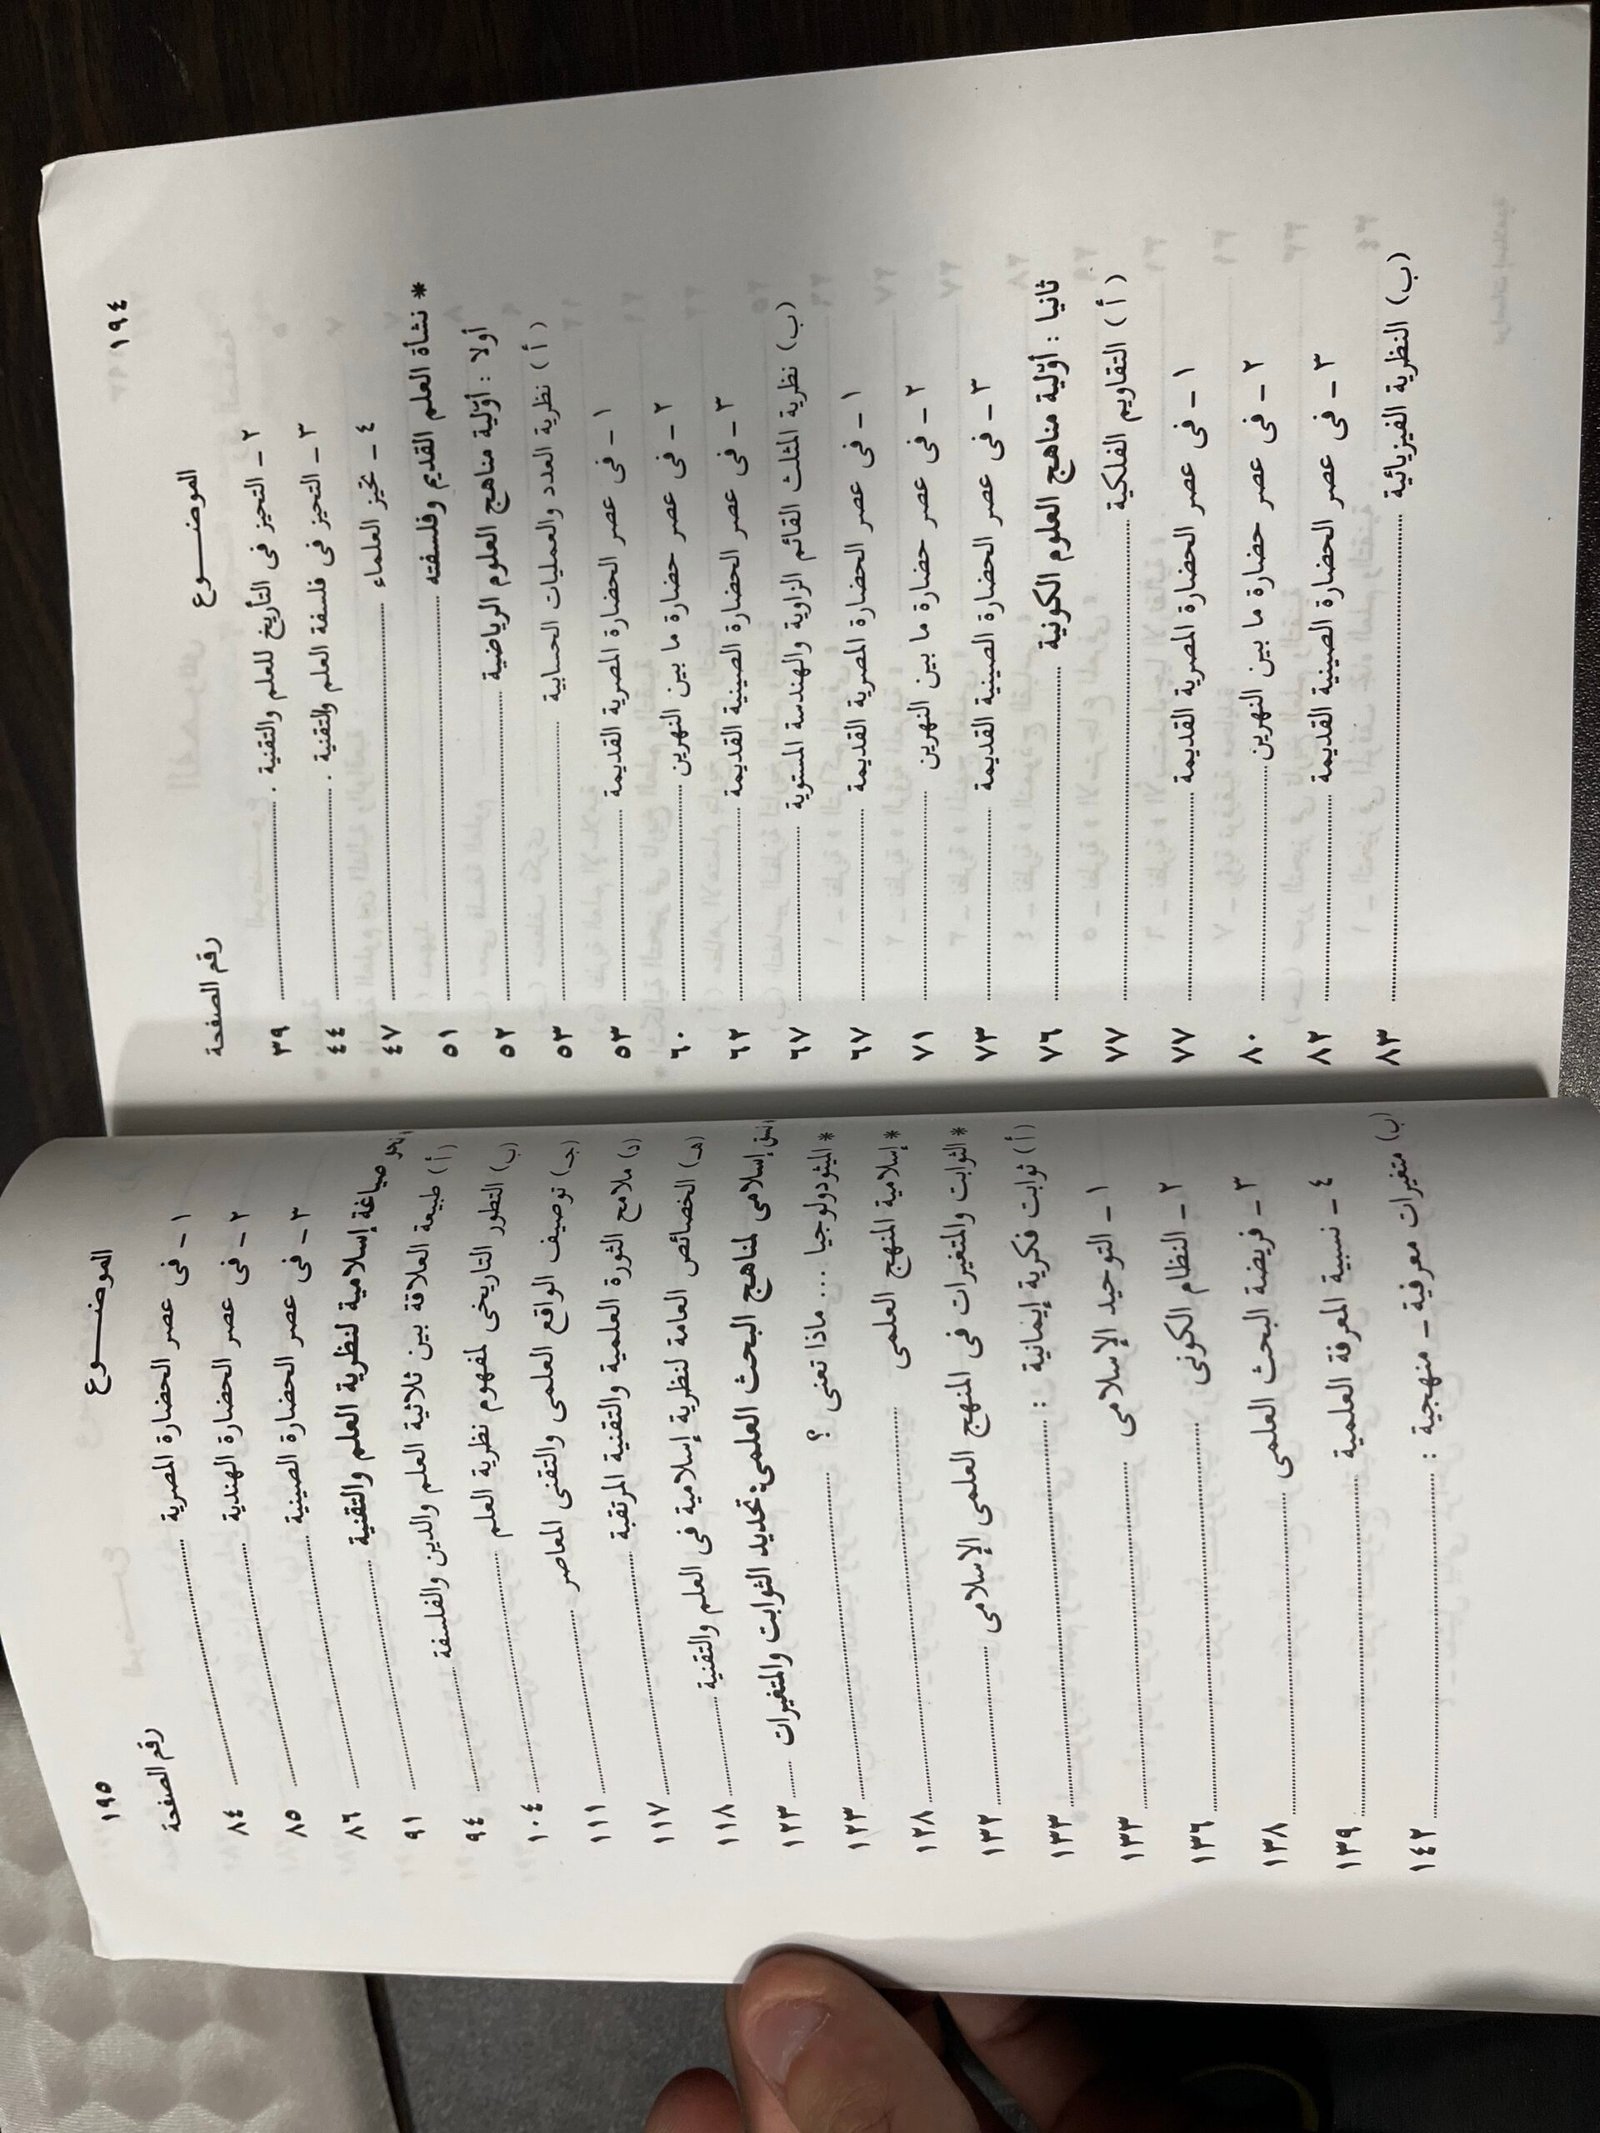 ١٩٤
الموضـــوع رقم الصفحة
٢ ـ التحيز فى التأريخ للعلم والتقنية . ٣٩
٣ ـ التحيز فى فلسفة العلم والتقنية . ٤٤
٤ ـ تحيز العلماء ٤٧
* نشأة العلم القديم وفلسفته ٥١
أولا : أوّلية مناهج العلوم الرياضية ٥٢
( أ ) نظرية العدد والعمليات الحسابية ٥٣
١ ـ فى عصر الحضارة المصرية القديمة ٥٣
٢ ـ فى عصر حضارة ما بين النهرين ٦٠
٣ ـ فى عصر الحضارة الصينية القديمة ٦٢
(ب) نظرية المثلث القائم الزاوية والهندسة المستوية ٦٧
١ ـ فى عصر الحضارة المصرية القديمة ٦٧
٢ ـ فى عصر حضارة ما بين النهرين ٧١
٣ ـ فى عصر الحضارة الصينية القديمة ٧٣
ثانيا : أوّلية مناهج العلوم الكونية ٧٦
( أ ) التقاويم الفلكية ٧٧
١ ـ فى عصر الحضارة المصرية القديمة ٧٧
٢ ـ فى عصر حضارة ما بين النهرين ٨٠
٣ ـ فى عصر الحضارة الصينية القديمة ٨٢
(ب) النظرية الفيزيائية ٨٣
١٩٥
الموضـــوع رقم الصفحة
١ ـ فى عصر الحضارة المصرية ٨٤
٢ ـ فى عصر الحضارة الهندية ٨٥
٣ ـ فى عصر الحضارة الصينية ٨٦
نحو صياغة إسلامية لنظرية العلم والتقنية ٩١
( أ ) طبيعة العلاقة بين ثلاثية العلم والدين والفلسفة ٩٤
(ب) التطور التاريخى لمفهوم نظرية العلم ١٠٤
(جـ) توصيف الواقع العلمى والتقنى المعاصر ١١١
(د) ملامح الثورة العلمية والتقنية المرتقبة ١١٧
(هـ) الخصائص العامة لنظرية إسلامية فى العلم والتقنية ١١٨
نسق إسلامى لمناهج البحث العلمى: تحديد الثوابت والمتغيرات ١٢٣
* الميثودولوجيا ... ماذا تعنى ؟ ١٢٣
* إسلامية المنهج العلمى ١٢٨
* الثوابت والمتغيرات فى المنهج العلمى الإسلامى ١٣٢
( أ ) ثوابت فكرية إيمانية : ١٣٣
١ ـ التوحيد الإسلامى ١٣٣
٢ ـ النظام الكونى ١٣٦
٣ ـ فريضة البحث العلمى ١٣٨
٤ ـ نسبية المعرفة العلمية ١٣٩
(ب) متغيرات معرفية ـ منهجية : ١٤٢